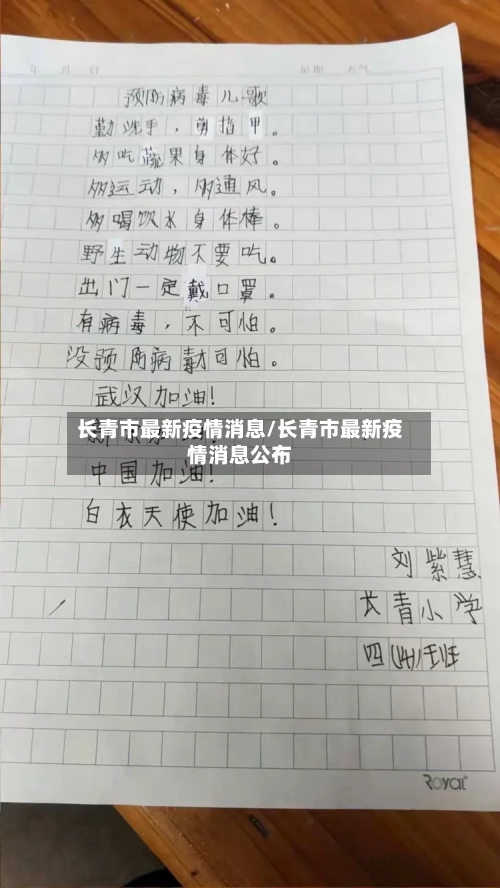 年 月 日 星期 天气
预防病毒儿歌
勤洗手，剪指甲。
多吃蔬果身体好。
多运动，多通风。
多喝饮水身体棒。
野生动物不要吃。
出门一定戴口罩。
有病毒，不可怕。
没预防病毒才可怕。
武汉加油！
长青市最新疫情消息/长青市最新疫
情消息公布
中国加油！
白衣天使加油！
刘紫慧
长青小学
四(4)班
Royal